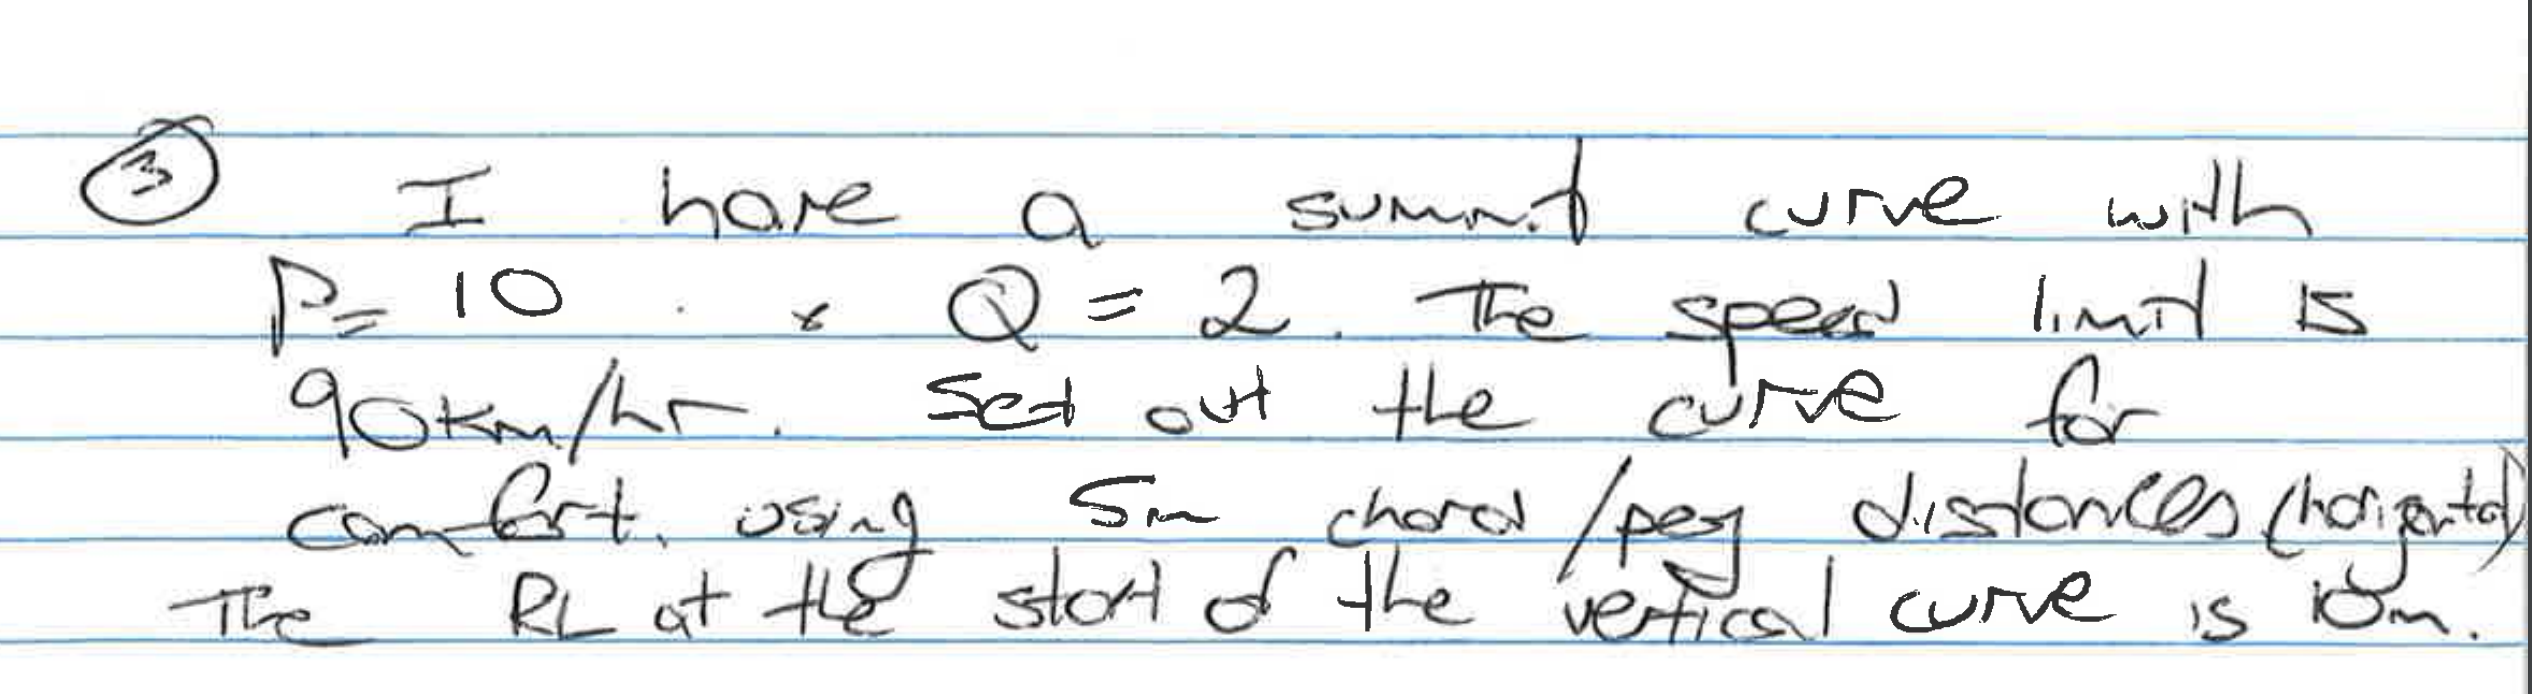 ③ I have a summit curve with
P= 10 & Q = 2. The speed limit is
90km/hr. Set out the curve for
comfort, using 5m chord/peg distances (horizontal)
The RL at the start of the vertical curve is 10m.